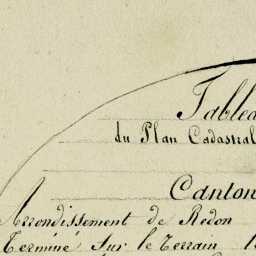 Tablea
du Plan Cadastral
Canton
Arrondissement de Redon
Terminé sur le Terrain